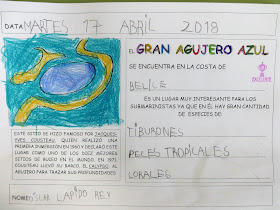 DATA MARTES 17 ABRIL 2018
EL GRAN AGUJERO AZUL
SE ENCUENTRA EN LA COSTA DE
BELICE
ES UN LUGAR MUY IMPORTANTE PARA LOS
SUBMARINISTAS YA QUE EN ÉL HAY GRAN CANTIDAD
DE ESPECIES DE
TIBURONES
PECES TROPICALES
CORALES
ESTE SITIO SE HIZO FAMOSO POR JACQUES-
YVES COUSTEAU, QUIEN REALIZÓ UNA
PRIMERA INMERSIÓN EN 1960 Y DECLARÓ ESTE
LUGAR COMO UNO DE LOS DIEZ MEJORES
SITIOS DE BUCEO EN EL MUNDO. EN 1971,
COUSTEAU LLEVÓ SU BARCO, EL CALYPSO AL
AGUJERO PARA TRAZAR SUS PROFUNDIDADES
NOME ÓSCAR LAPIDO REY